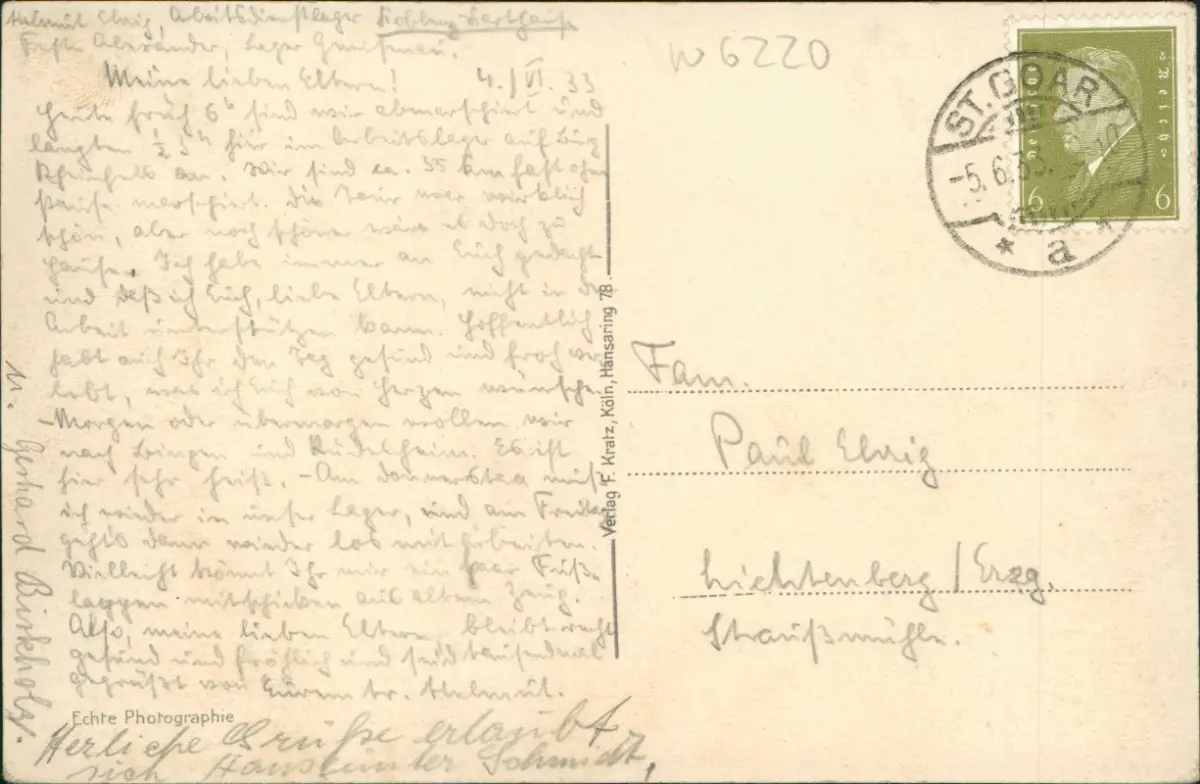 Helmut Elsig, Arbeitsdienstlager Koblenz-Karthause
Feste Alexander, Lager Gneisenau.
Meine lieben Eltern! 4./VI. 33
Heute früh 6h sind wir abmarschiert und
langten ½ 5h hier im Arbeitslager auf Burg
Rheinfels an. Wir sind ca. 35 km fast ohne
Pause marschiert. Die Tour war wirklich
schön, aber noch schöner wäre es doch zu
Hause. Ich habe immer an Euch gedacht
und daß ich Euch, liebe Eltern, nicht in der
Arbeit unterstützen kann. Hoffentlich
habt auch Ihr den Tag gesund und froh ver
lebt, was ich Euch von Herzen wünsche.
-Morgen oder übermorgen wollen wir
nach Bingen und Rüdesheim. Es ist
hier sehr heiß. -Am Donnerstag muß
ich wieder in unser Lager, und am Freitag
gehts dann wieder los mit arbeiten.
Vielleicht könnt Ihr mir ein paar Fuß-
lappen mitschicken aus altem Zeug.
Also, meine lieben Eltern, bleibt recht
gesund und fröhlich und seid tausendmal
gegrüßt von Eurem tr. Helmut.
Echte Photographie
Herliche Grüße erlaubt
sich Hansgünter Schmidt,
u. Gerhard Birkholz.
Verlag F. Kratz, Köln, Hansaring 78.
W 6220
ST. GOAR
-5.6.33.
* a *
Deutsches Reich
6 6
Fam.
Paul Elsig
Lichtenberg / Erzg.
Straußmühle.